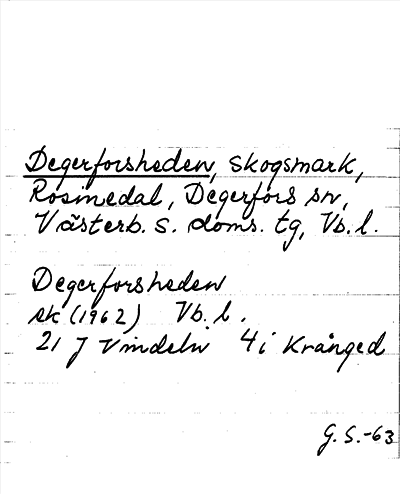 Degerforsheden, skogsmark,
Rosinedal, Degerfors sn,
Västerb. s. doms. tg, Vb. l.
Degerforsheden
sk (1962) Vb. l.
21 J Vindeln 4 i Krånged
G. S.-63